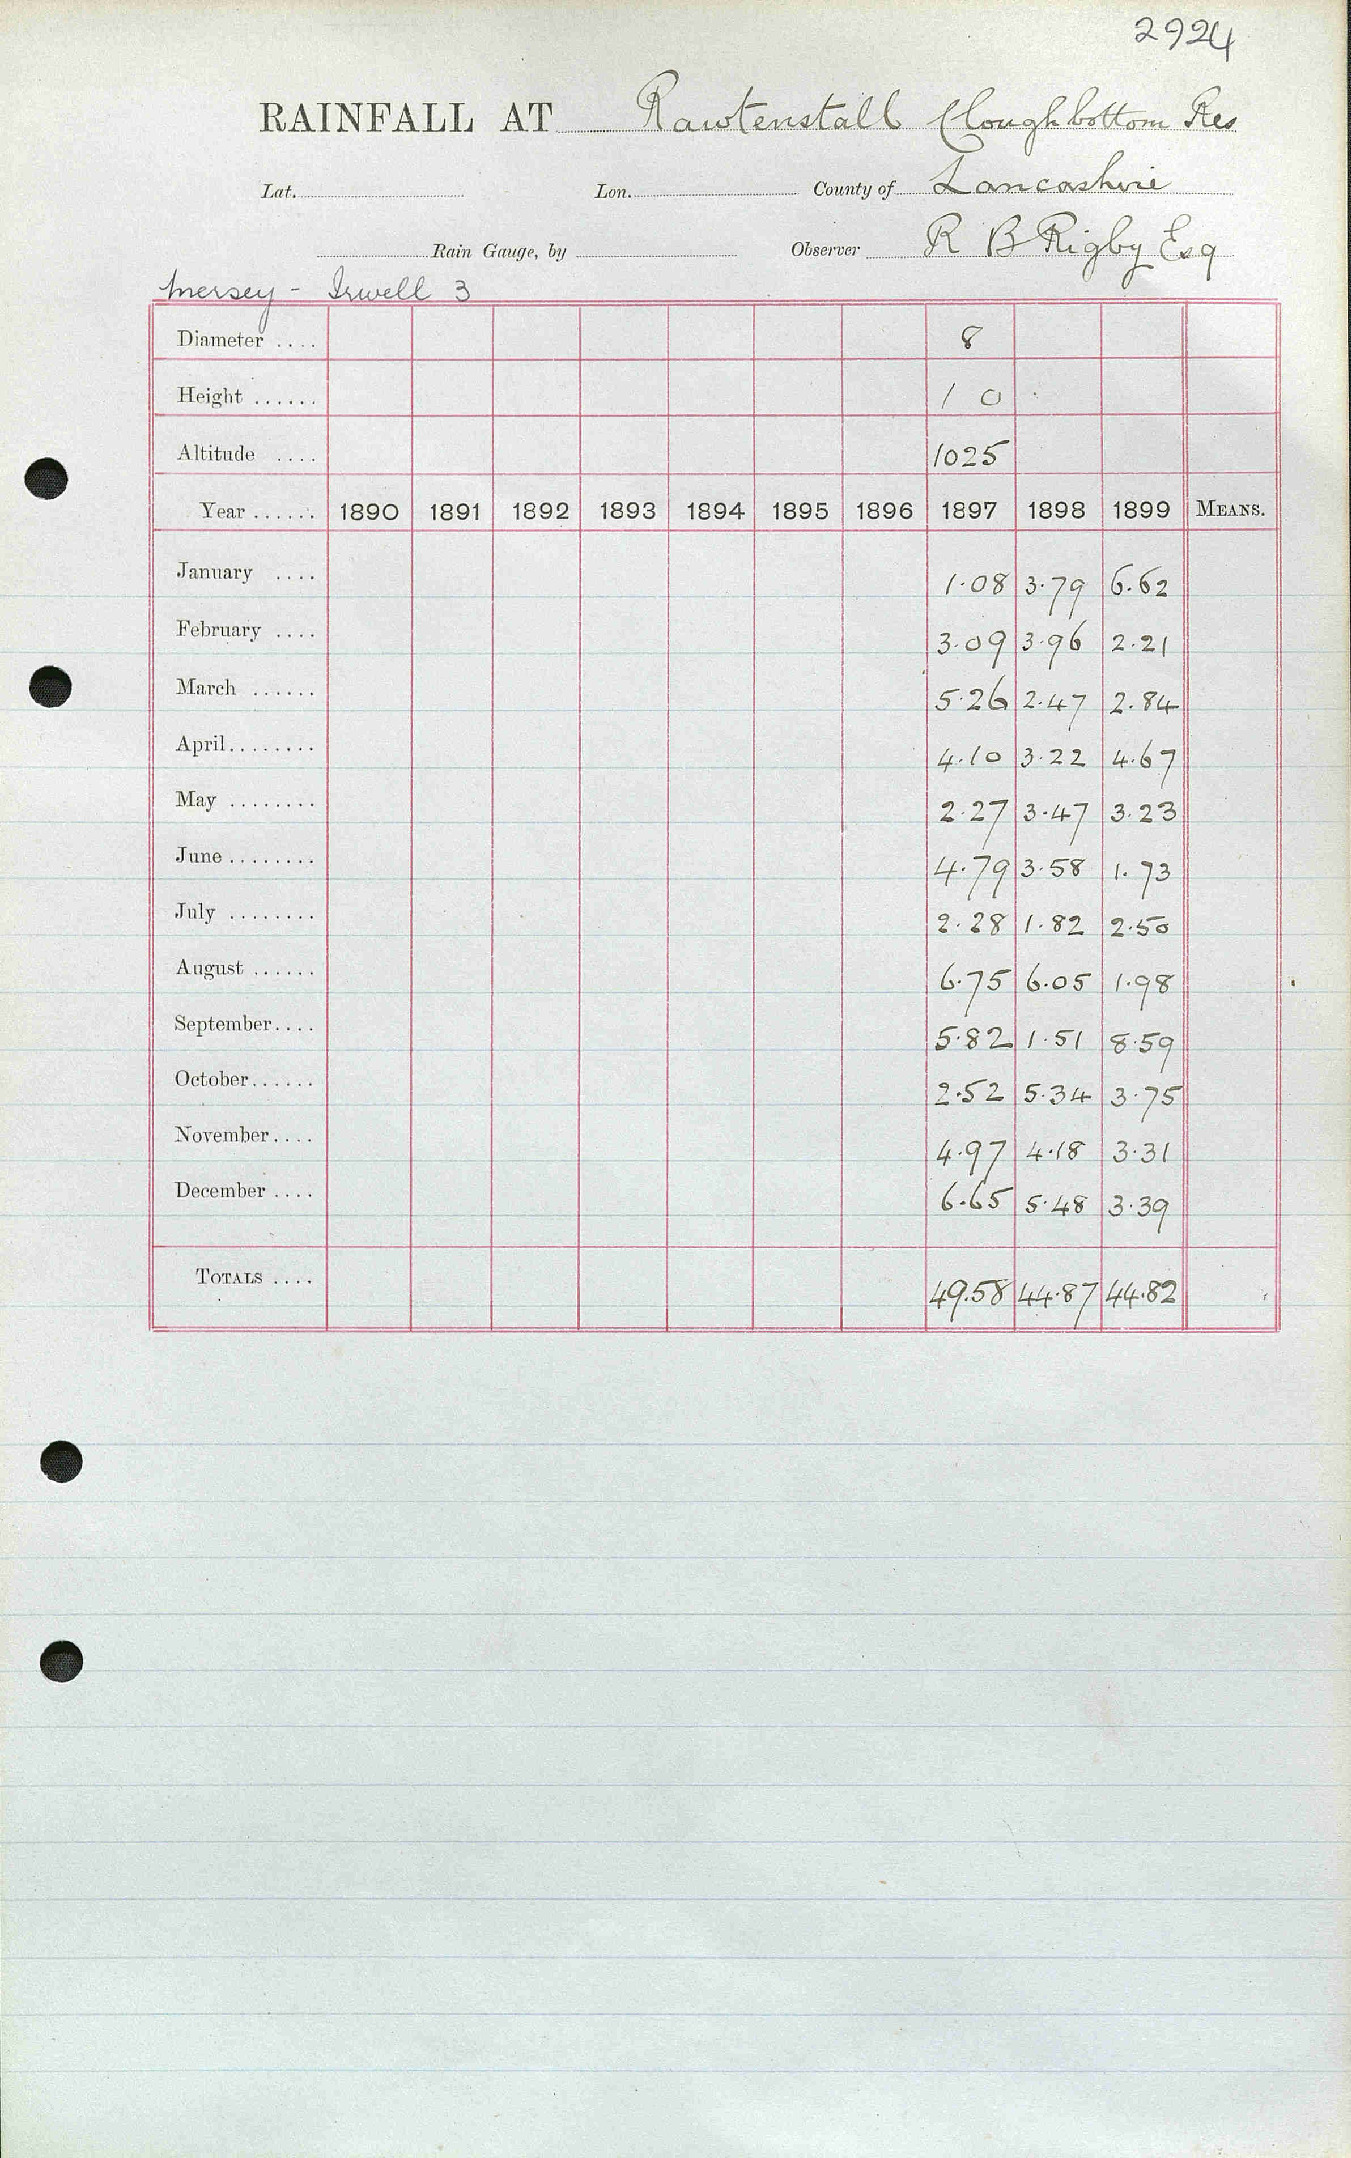 2924
RAINFALL AT Rawtenstall Cloughbottom Res
Lat. Lon. County of Lancashire
Rain Gauge, by Observer R B Rigby Esq
Mersey - Irwell 3
Diameter .... 8
Height ...... 1 0
Altitude .... 1025
Year ...... 1890 1891 1892 1893 1894 1895 1896 1897 1898 1899 MEANS.
January .... 1.08 3.79 6.62
February .... 3.09 3.96 2.21
March ...... 5.26 2.47 2.84
April........ 4.10 3.22 4.67
May ........ 2.27 3.47 3.23
June ........ 4.79 3.58 1.73
July ........ 2.28 1.82 2.50
August ...... 6.75 6.05 1.98
September.... 5.82 1.51 8.59
October...... 2.52 5.34 3.75
November.... 4.97 4.18 3.31
December .... 6.65 5.48 3.39
TOTALS .... 49.58 44.87 44.82